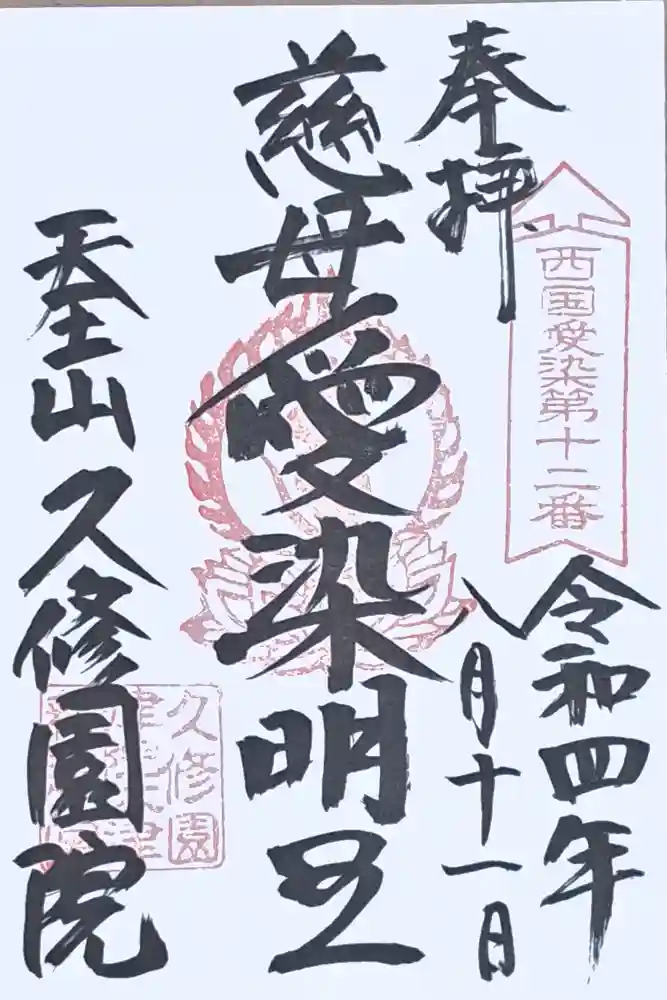 奉拝
西国愛染第十二番
令和四年
八月十一日
慈母愛染明王
天王山 久修園院
久修園